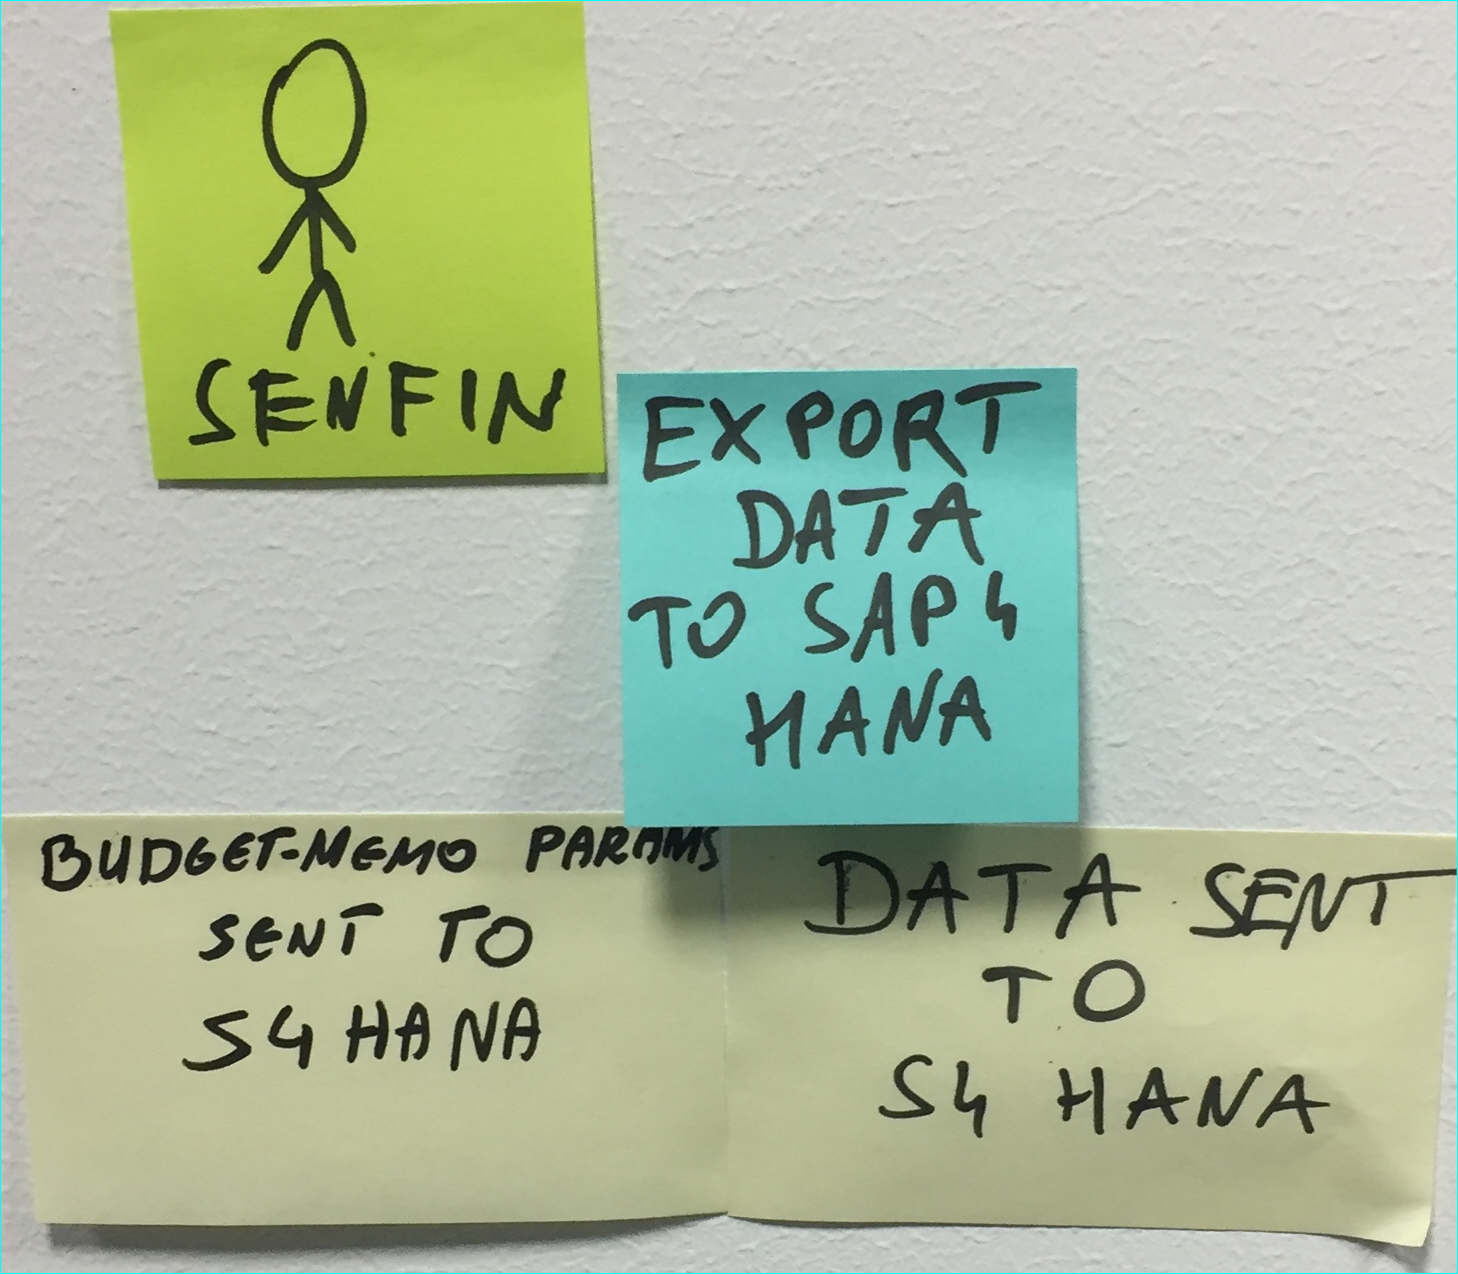 SENFIN
EXPORT
DATA
TO SAP 4
HANA
BUDGET-MEMO PARAMS
SENT TO
S4 HANA
DATA SENT
TO
S4 HANA